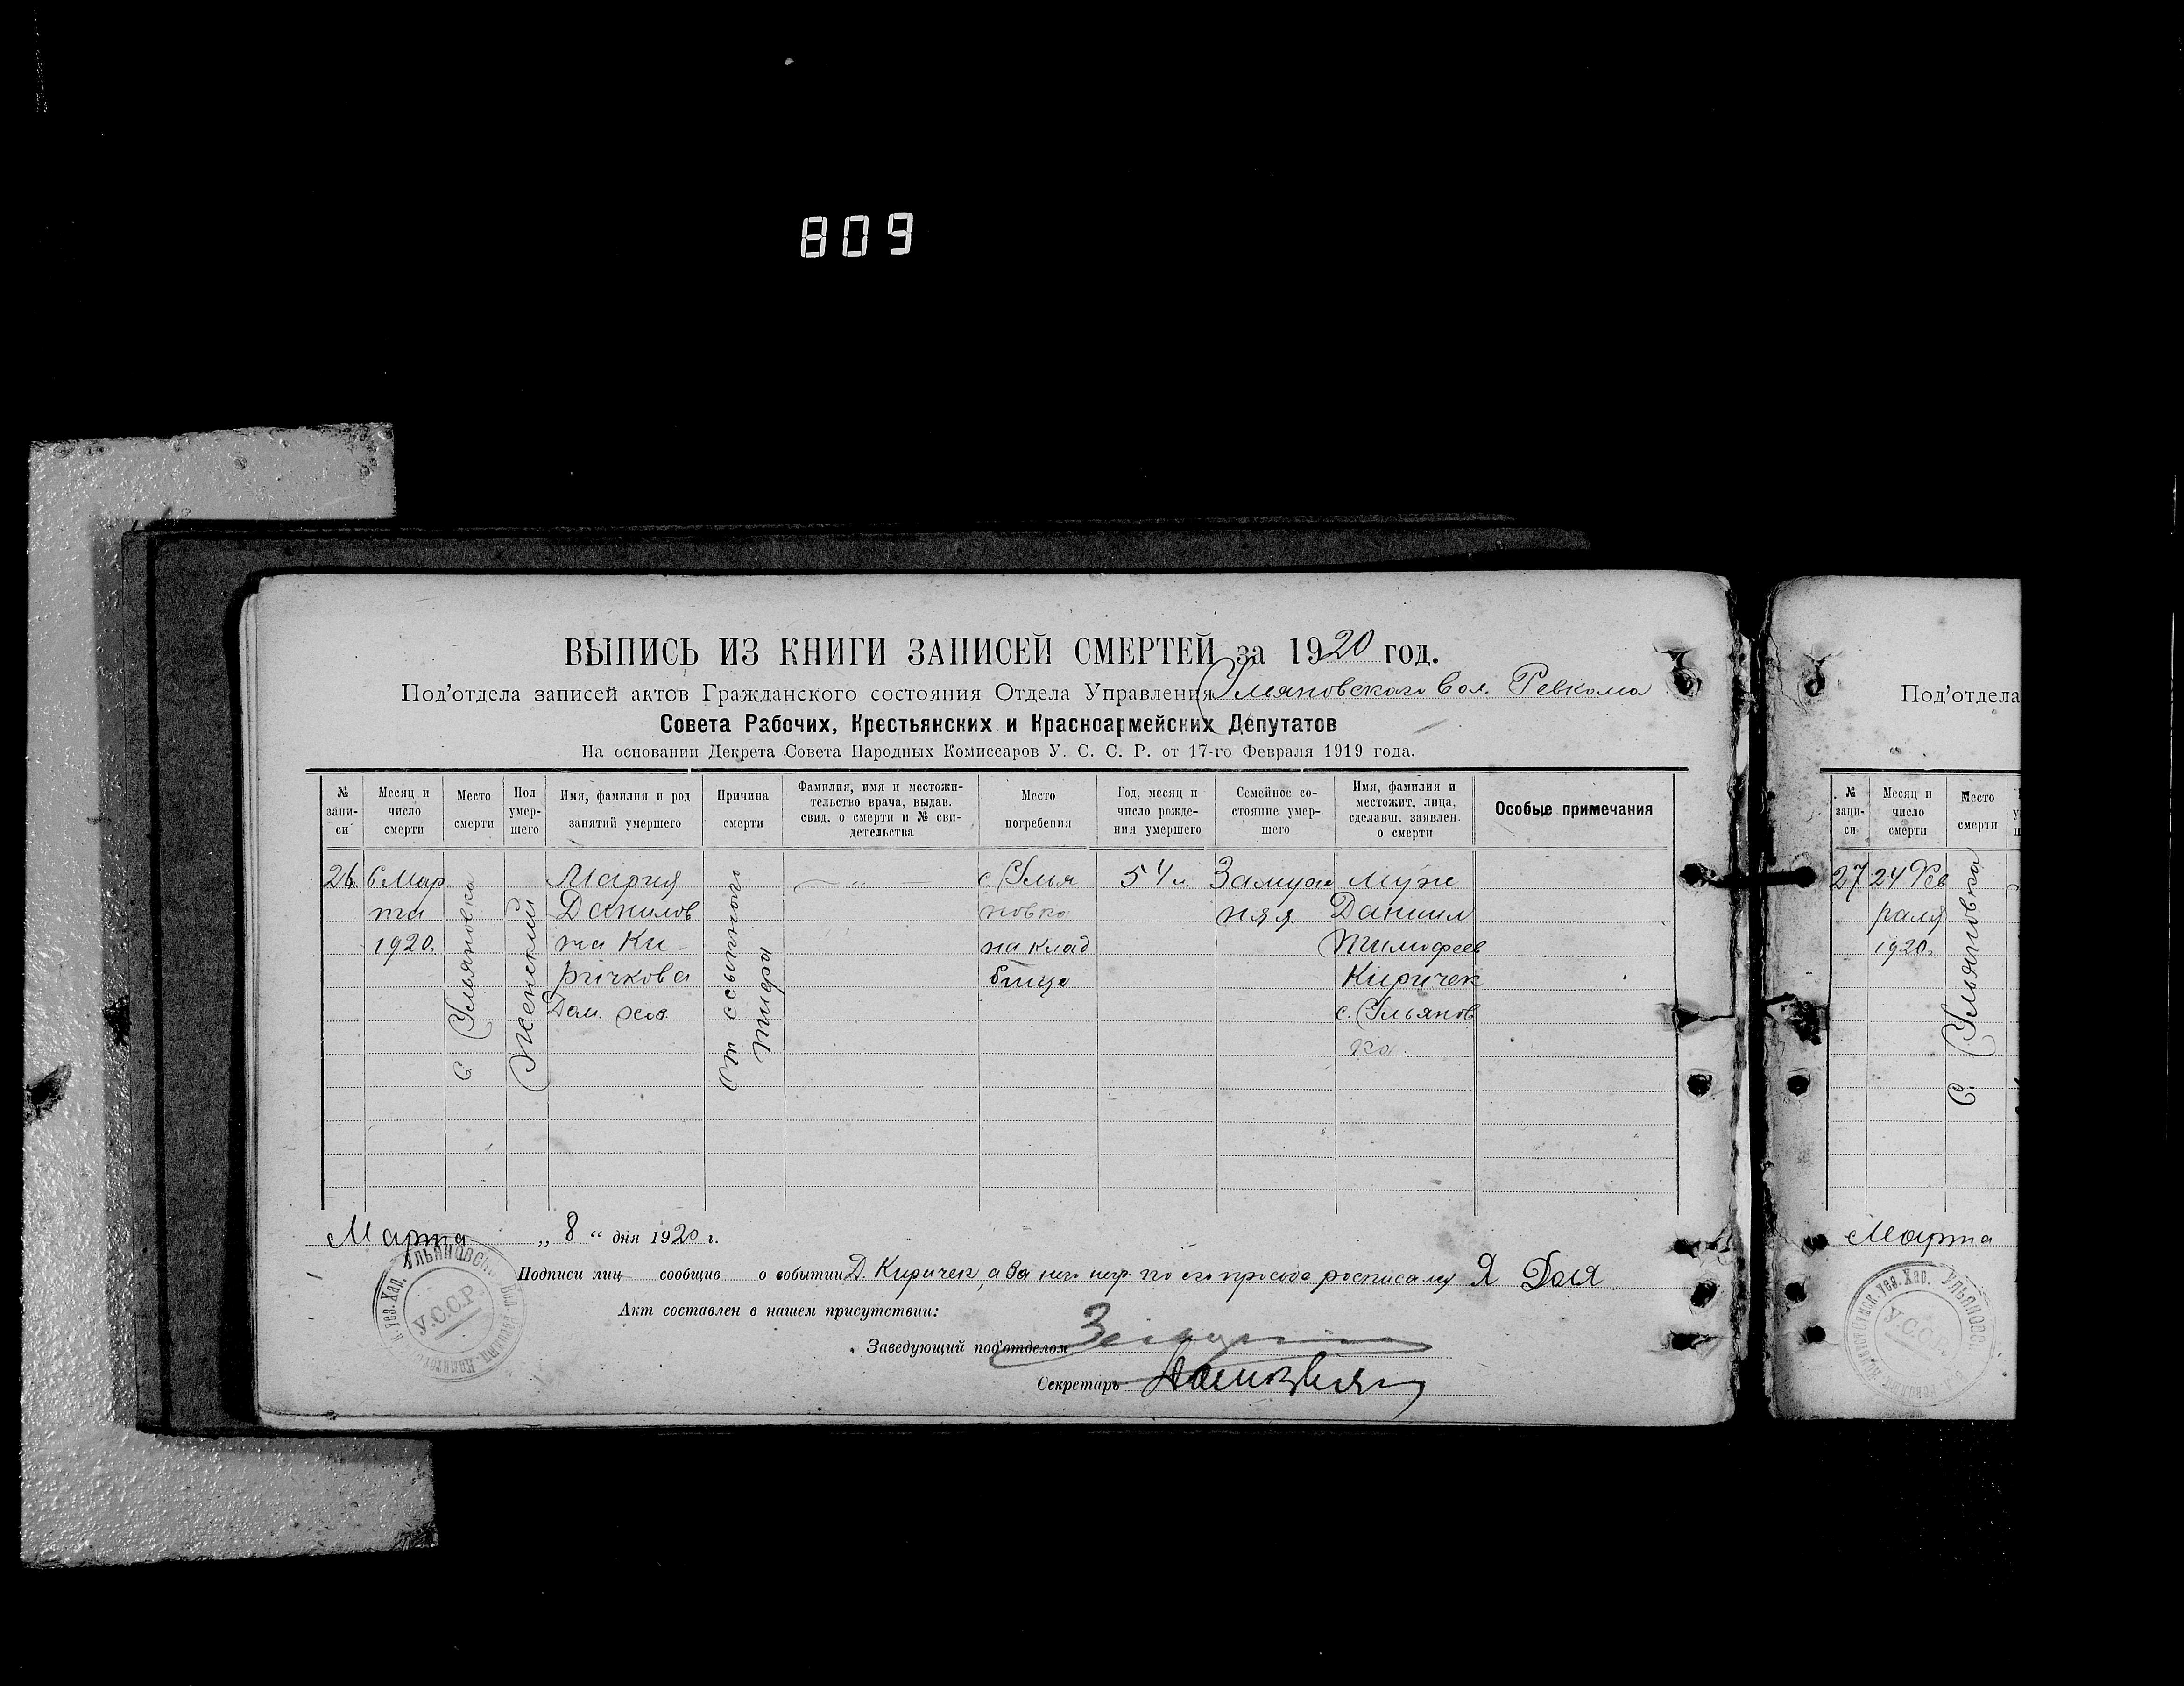 809
ВЫПИСЬ ИЗ КНИГИ ЗАПИСЕЙ СМЕРТЕЙ за 1920 год.
Под'отдела записей актов Гражданского состояния Отдела Управления Ульяновского Вол. Ревкома
Совета Рабочих, Крестьянских и Красноармейских Депутатов
На основании Декрета Совета Народных Комиссаров У. С. С. Р. от 17-го Февраля 1919 года.
№ запи-си
Месяц и число смерти
Место смерти
Пол умер-шего
Имя, фамилия и род занятий умершего
Причина смерти
Фамилия, имя и местожи-тельство врача, выдав. свид. о смерти и № сви-детельства
Место погребения
Год, месяц и число рожде-ния умершего
Семейное со-стояние умер-шего
Имя, фамилия и местожит. лица, сделавш. заявлен. о смерти
Особые примечания
26
6 Мар
та
1920.
с. Ульяновка
Женский
Мария
Данилов
на Ки-
ричкова
Дом. хоз.
От сыпного
тифа
— „ —
с. Улья
новка
на клад
бище
54 л.
Замуж
няя
Муж
Даниил
Тимофеев
Киричек
с. Ульянов
ка.
Марта „ 8 “ дня 1920 г.
Подписи лиц сообщив о событии Д. Киричек, а за него по его просьбе
Акт составлен в нашем присутствии:
Заведующий под'отделом
Секретарь
У.С.С.Р.
Под'отдела
№ запи-си
Месяц и число смерти
Место смерти
27
24 Фев
раля
1920.
С. Ульяновка
Марта
У.С.С.Р.